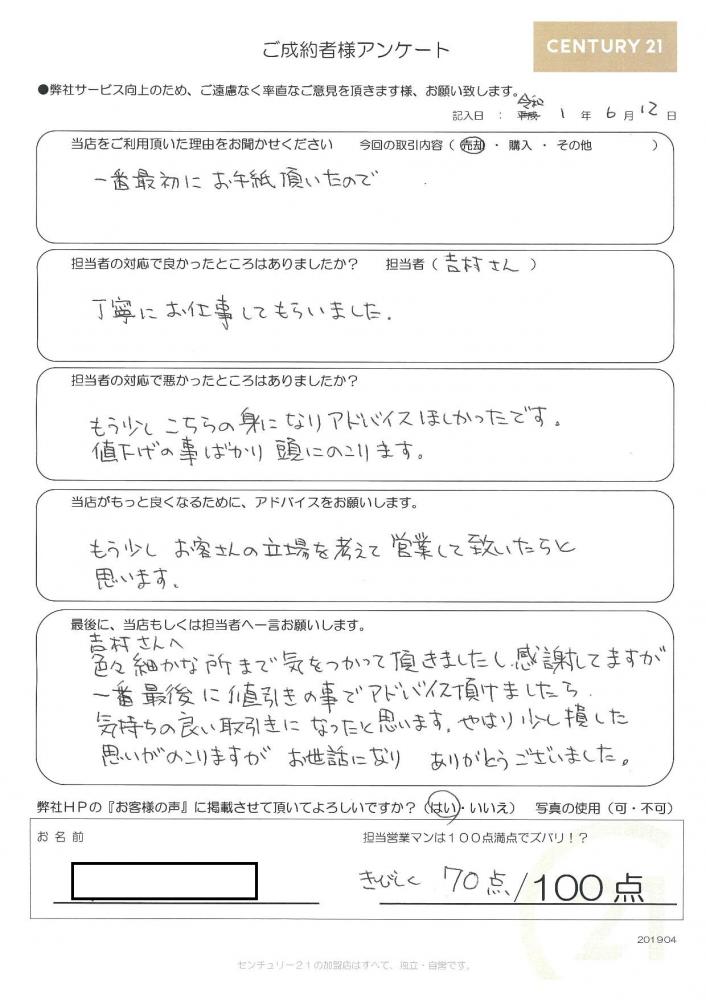 ご成約者様アンケート
CENTURY 21
●弊社サービス向上のため、ご遠慮なく率直なご意見を頂きます様、お願い致します。
記入日 : 平成 令和 1 年 6 月 12 日
当店をご利用頂いた理由をお聞かせください 今回の取引内容 ( 売却 ・ 購入 ・ その他 )
一番最初に お手紙頂いたので
担当者の対応で良かったところはありましたか? 担当者 ( 吉村さん )
丁寧に お仕事してもらいました.
担当者の対応で悪かったところはありましたか?
もう少し こちらの身になりアドバイスほしかったです。
値下げの事ばかり 頭にのこります。
当店がもっと良くなるために、アドバイスをお願いします。
もう少し お客さんの立場を考えて 営業して致いたらと
思います.
最後に、当店もしくは担当者へ一言お願いします。
吉村さんへ
色々細かな所まで気をつかって頂きましたし、感謝してますが
一番最後に値引きの事でアドバイス頂けましたら.
気持ちの良い取引きになったと思います。やはり少し損した
思いがのこりますが お世話になり ありがとうございました。
弊社HPの『お客様の声』に掲載させて頂いてよろしいですか? (はい・いいえ) 写真の使用 (可・不可)
お名前
担当営業マンは100点満点でズバリ!?
きびしく 70点/100点
201904
センチュリー21の加盟店はすべて、独立・自営です。